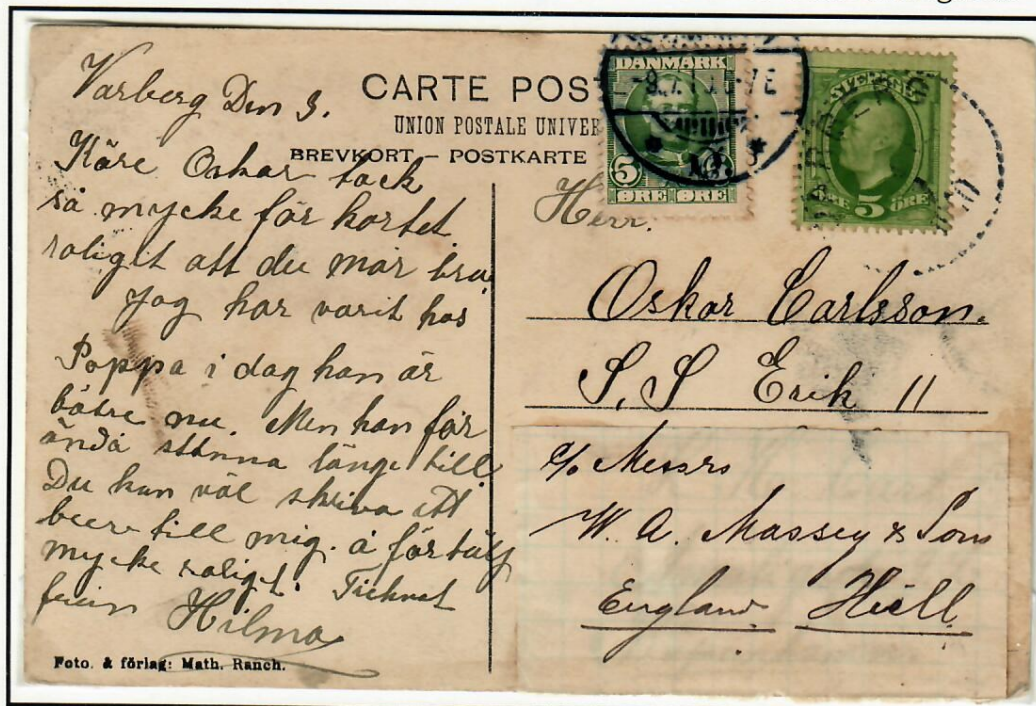 Varberg Den 3.
CARTE POS
UNION POSTALE UNIVER
BREVKORT – POSTKARTE
Käre Oskar tack
så mycke för kortet
roligt att du mår bra
Jag har varit hos
Pappa i dag han är
bätre nu. Men han får
ändå stanna länge till
Du kan väl skriva ett
till mig. å förtälj
mycke roligt.
Hilma
Foto. & förlag: Math. Ranch.
DANMARK
5
ØRE ØRE
5 ÖRE
Herr.
Oskar Carlsson.
S. S Erik 11
c/o Messrs
W. A. Massey & Sons
England Hull